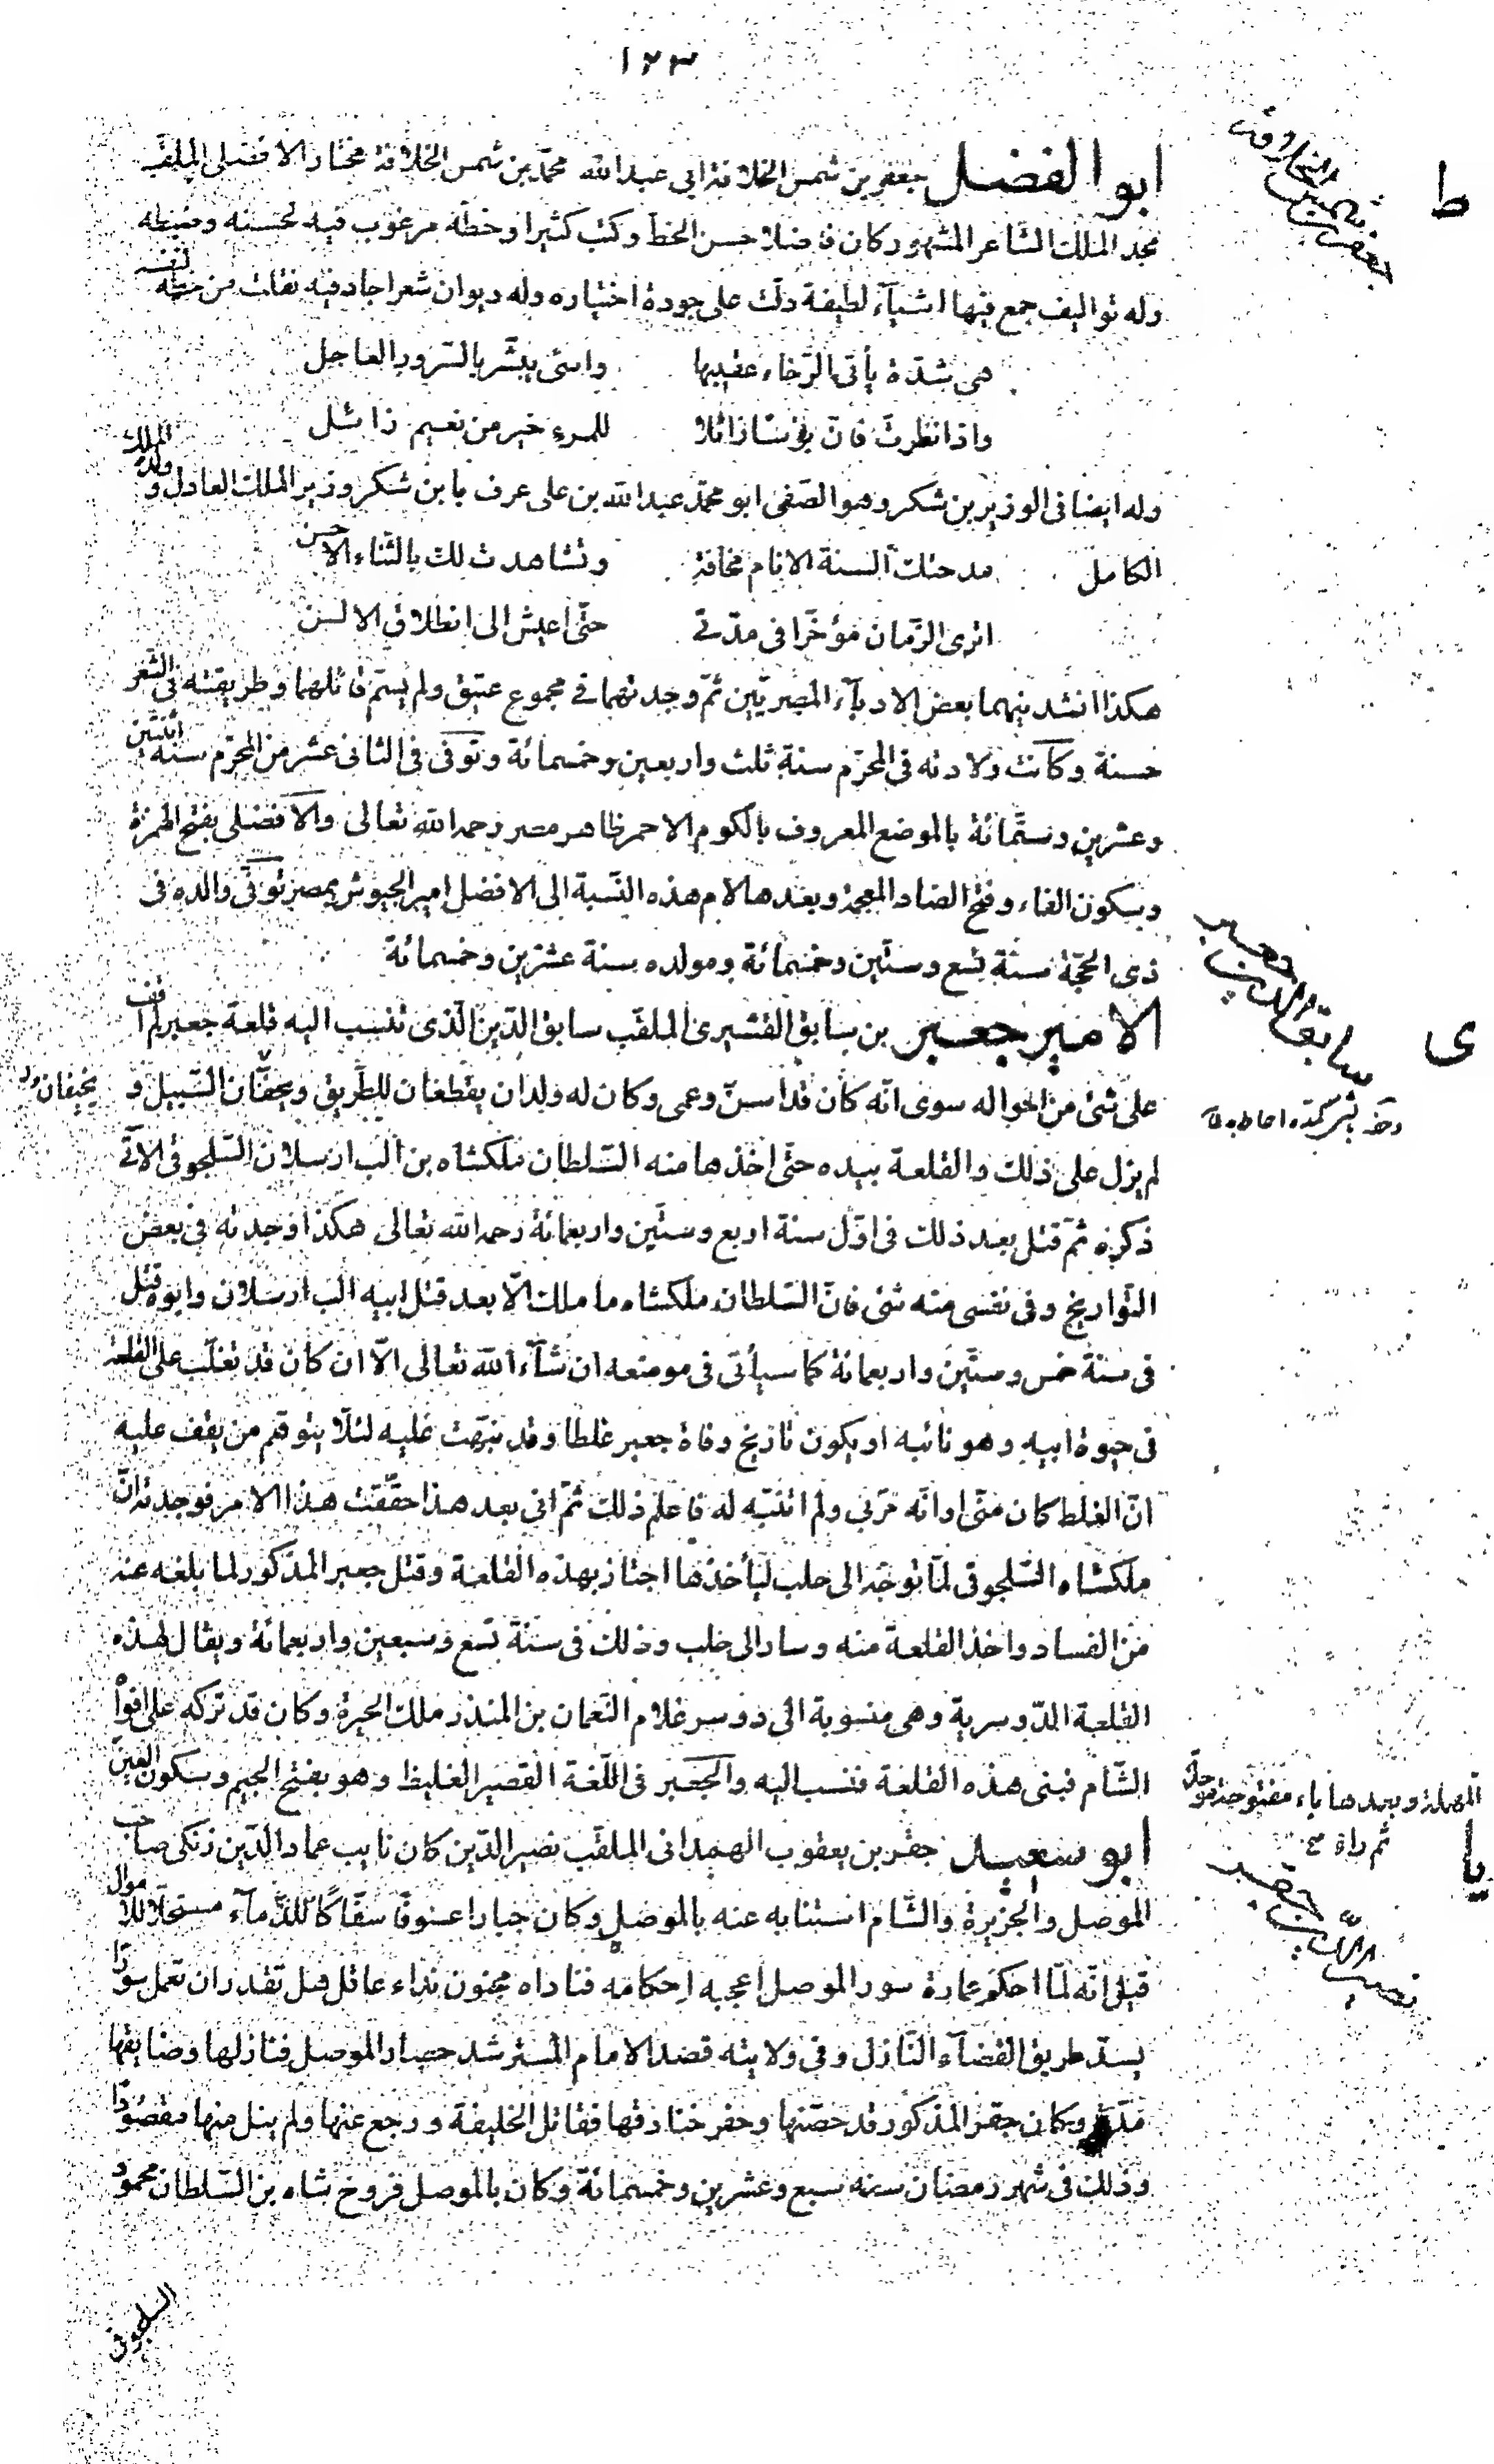 ١٢٣
ط
ابو الفضل جعفر بن شمس الخلافة ابى عبدالله محمّد بن شمس الخلافة مختار الافضلى الملقّب
مجد الملك الشاعر المشهور كان فاضلا حسن الخط وكتب كثيرا وخطّه مرغوب فيه لحسنه وضبطه
وله تواليف جمع فيها اشيآء لطيفة دلّت على جودة اختياره وله ديوان شعر اجاد فيه نقلت من خطّه لنفسه
هى شدّة يأتى الرّخاء عقيبها واسًى يبشّر بالسّرور العاجل
واذا نظرت فانّ بؤسًا زائلا للمرء خير من نعيم زائل
وله ايضا فى الوزير بن شكر وهو الصّفى ابو محمّد عبدالله بن على عرف بابن شكر وزير الملك العادل وولده الملك
الكامل مدحتك ألسنة الانام مخافة وتشاهدت لك بالثّناء الاحسن
اترى الزّمان مؤخّرا فى مدّتى حتّى اعيش الى انطلاق الالسن
هكذا انشدنيهما بعض الادبآء المصريّين ثمّ وجدتهما فى مجموع عتيق ولم يسمّ قائلهما وطريقته فى الشّعر
حسنة وكانت ولادته فى المحرّم سنة ثلث واربعين وخمسمائة وتوفّى فى الثانى عشر من المحرّم سنة اثنتين
وعشرين وستّمائة بالموضع المعروف بالكوم الاحمر ظاهر مصر رحمه الله تعالى والافضلى بفتح الهمزة
وسكون الفاء وفتح الضاد المعجمة وبعدها لام هذه النّسبة الى الافضل امير الجيوش بمصر توفّى والده فى
ذى الحجّة سنة تسع وستّين وخمسمائة ومولده سنة عشرين وخمسمائة
سابق الدين جعبر
ى
الامير جعبر بن سابق القشيرى الملقّب سابق الدّين الّذى تنسب اليه قلعة جعبر لم اقف
على شئ من احواله سوى انّه كان قد اسنّ وعمى وكان له ولدان يقطعان للطّريق ويخيفان السّبيل و
يخيفان
لم يزل على ذلك والقلعة بيده حتّى اخذها منه السّلطان ملكشاه بن الب ارسلان السّلجوقى الآتى
ذكره ثمّ قتل بعد ذلك فى اوّل سنة اربع وستّين واربعمائة رحمه الله تعالى هكذا وجدته فى بعض
التّواريخ وفى نفسى منه شئ فانّ السّلطان ملكشاه ما ملك الّا بعد قتل ابيه الب ارسلان وابوه قتل
فى سنة خمس وستّين واربعمائة كما سيأتى فى موضعه ان شآء الله تعالى الّا ان كان قد تغلّب على القلعة
فى حيوة ابيه وهو نائبه او يكون تاريخ وفاة جعبر غلطا وقد نبّهت عليه لئلّا يتوهّم من يقف عليه
انّ الغلط كان منّى او انّه مرّبى ولم اتنبّه له فاعلم ذلك ثمّ انى بعد هذا حقّقت هذا الامر فوجدته انّ
ملكشاه السّلجوقى لمّا توجّه الى حلب ليأخذها اجتاز بهذه القلعة وقتل جعبر المذكور لما بلغه عنه
من الفساد واخذ القلعة منه وسار الى حلب وذلك فى سنة تسع وسبعين واربعمائة ويقال لهذه
القلعة الدّوسريّة وهى منسوبة الى دوسر غلام النّعمان بن المنذر ملك الحيرة وكان قد تركه على افواه
الشّام فبنى هذه القلعة فنسب اليه والجعبر فى اللّغة القصير الغليظ وهو بفتح الجيم وسكون العين
المهملة وبعدها باء مفتوحة موحدة
ثم راء
نصير الدين جقر
يا
ابو سعيد جقر بن يعقوب الهمدانى الملقّب نصير الدّين كان نايب عماد الدّين زنكى صاحب
الموصل والجزيرة والشّام استنابه عنه بالموصل وكان جبارا عسوفًا سفّاكًا للدّمآء مستحلّا للاموال
قيل انّه لمّا احكم عمارة سور الموصل اعجبه احكامه فناداه مجنون نداء عاقل هل تقدر ان تعمل سورًا
يسدّ طريق القضآء النّازل وفى ولايته قصد الامام المسترشد حصار الموصل فنازلها وضايقها
مدّة وكان جقر المذكور قد حصّنها وحفر خنادقها فقاتل الخليفة ورجع عنها ولم ينل منها مقصودًا
وذلك فى شهر رمضان سنة سبع وعشرين وخمسمائة وكان بالموصل فروخ شاه بن السّلطان محمود
السلجوقى